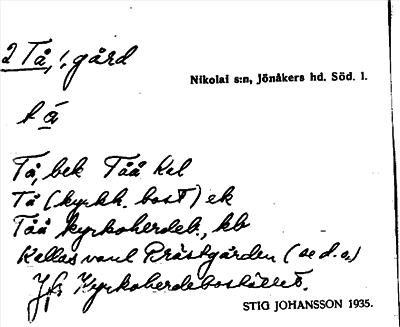 2 Tå, 1 gård
Nikolai s:n, Jönåkers hd. Söd. l.
tá
Tå, bek Tåå Kel
Tå (kyrkh. bost) ek
Tåå kyrkoherdeb., kb
Kallas vanl Prästgården (ae d. o)
Jfr Kyrkoherdebostället.
STIG JOHANSSON 1935.